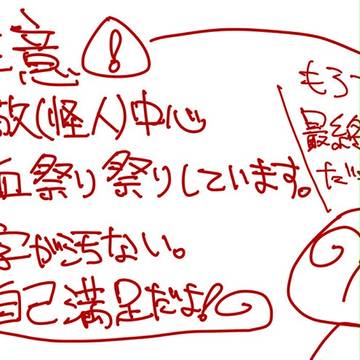 注意！
敵(怪人)中心
血祭り祭りしています。
字が汚ない。
自己満足だよ！
もう
最終
だ